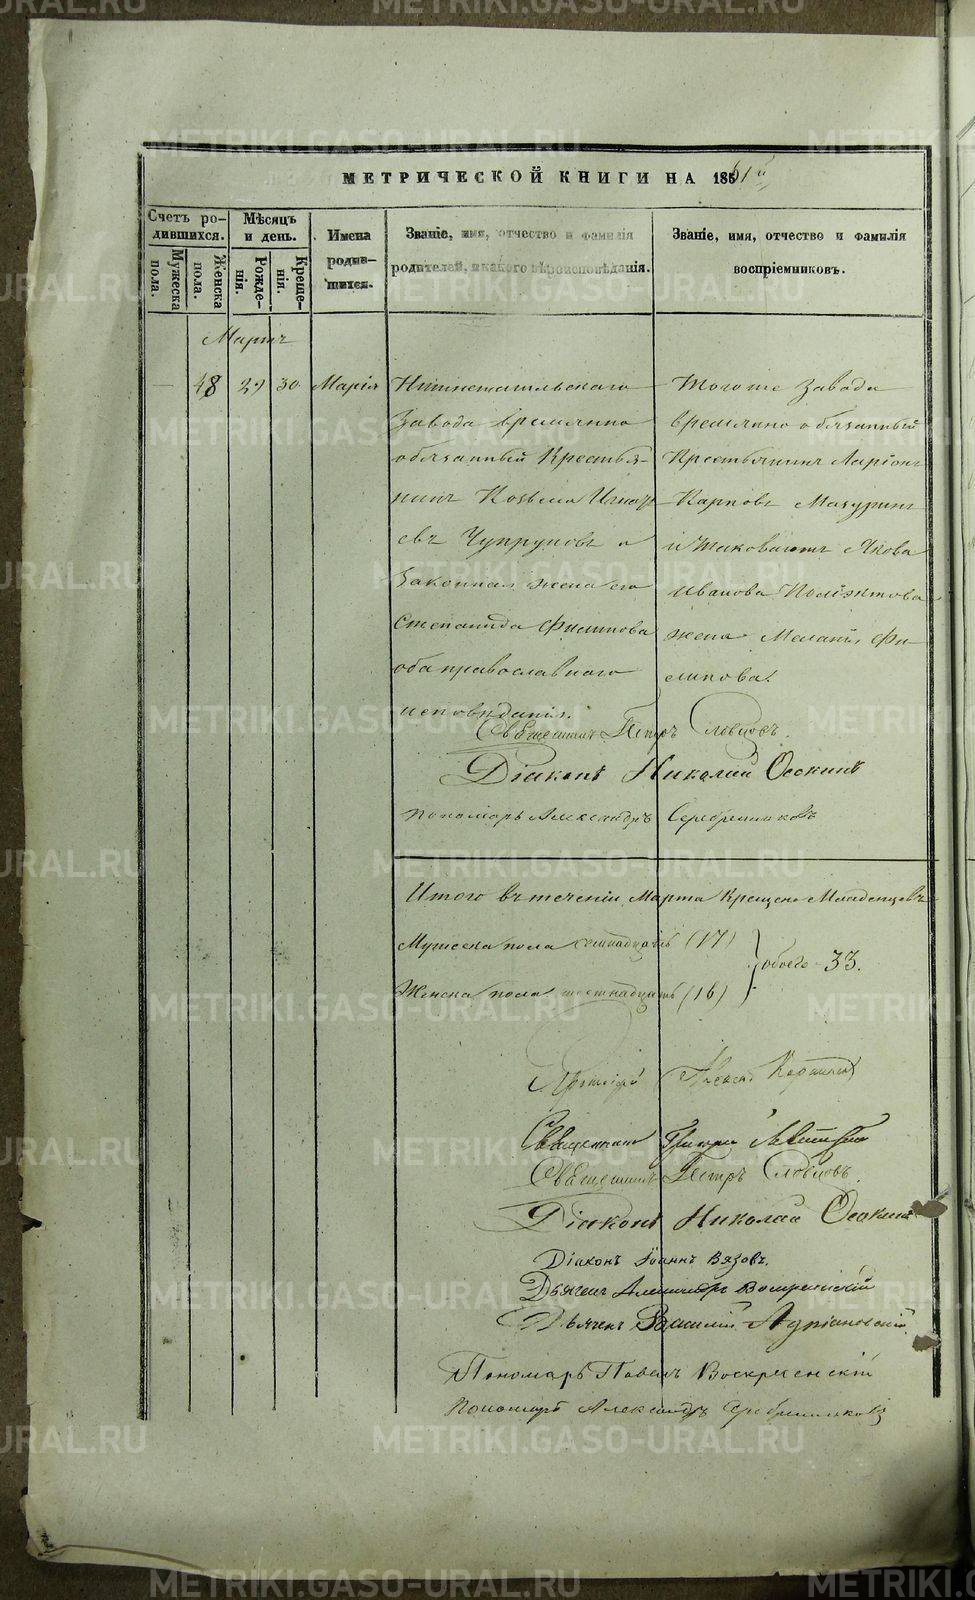 METRIKI.GASO-URAL.RU
МЕТРИЧЕСКОЙ КНИГИ НА 1861й
Счетъ родившихся.
Мѣсяцъ и день.
Имена родившихся.
Званіе, имя, отчество и фамилія родителей, и какого вѣроисповѣданія.
Званіе, имя, отчество и фамилія воспріемниковъ.
Мужеска пола.
Женска пола.
Рожденія.
Крещенія.
Мартъ
48 29 30 Марія
Нижнетагильскаго
Завода временно
обязанный Крестья-
нинъ Козьма Игнать-
евъ Чупруновъ и
законная жена его
Степанида Филипова
оба православнаго
исповѣданія.
Тогоже Завода
временно обязанный
Крестьянинъ Ларіонъ
Карповъ Мазуринъ
Иванова
жена Меланія Фи-
липова.
Священникъ Петръ Словцовъ.
Діаконъ Николай Осокинъ
Пономарь Александръ Серебренниковъ
Итого въ теченіи Марта Крещено Младенцевъ
Мужеска пола семнадцать (17)
обоего 33.
Женска пола шестнадцать (16)
Священникъ
Священникъ Петръ Словцовъ.
Діаконъ Николай Осокинъ
Діаконъ Іоаннъ Вязовъ.
Дьячекъ Александръ Воскресенскій
Дьячекъ Василій Адріановскій
Пономарь Павелъ Воскресенскій
Пономарь Александръ Серебренниковъ